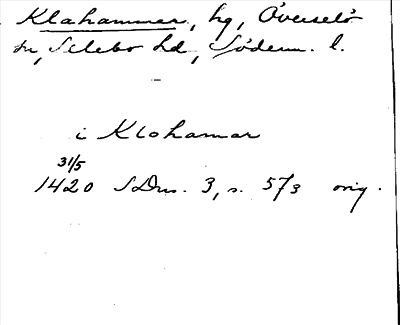 Klahammer, hg, Överselö
sn, Selebo hd, Söderm. l.
i Klohamar
31/5
1420 SDns. 3, s. 573 orig.